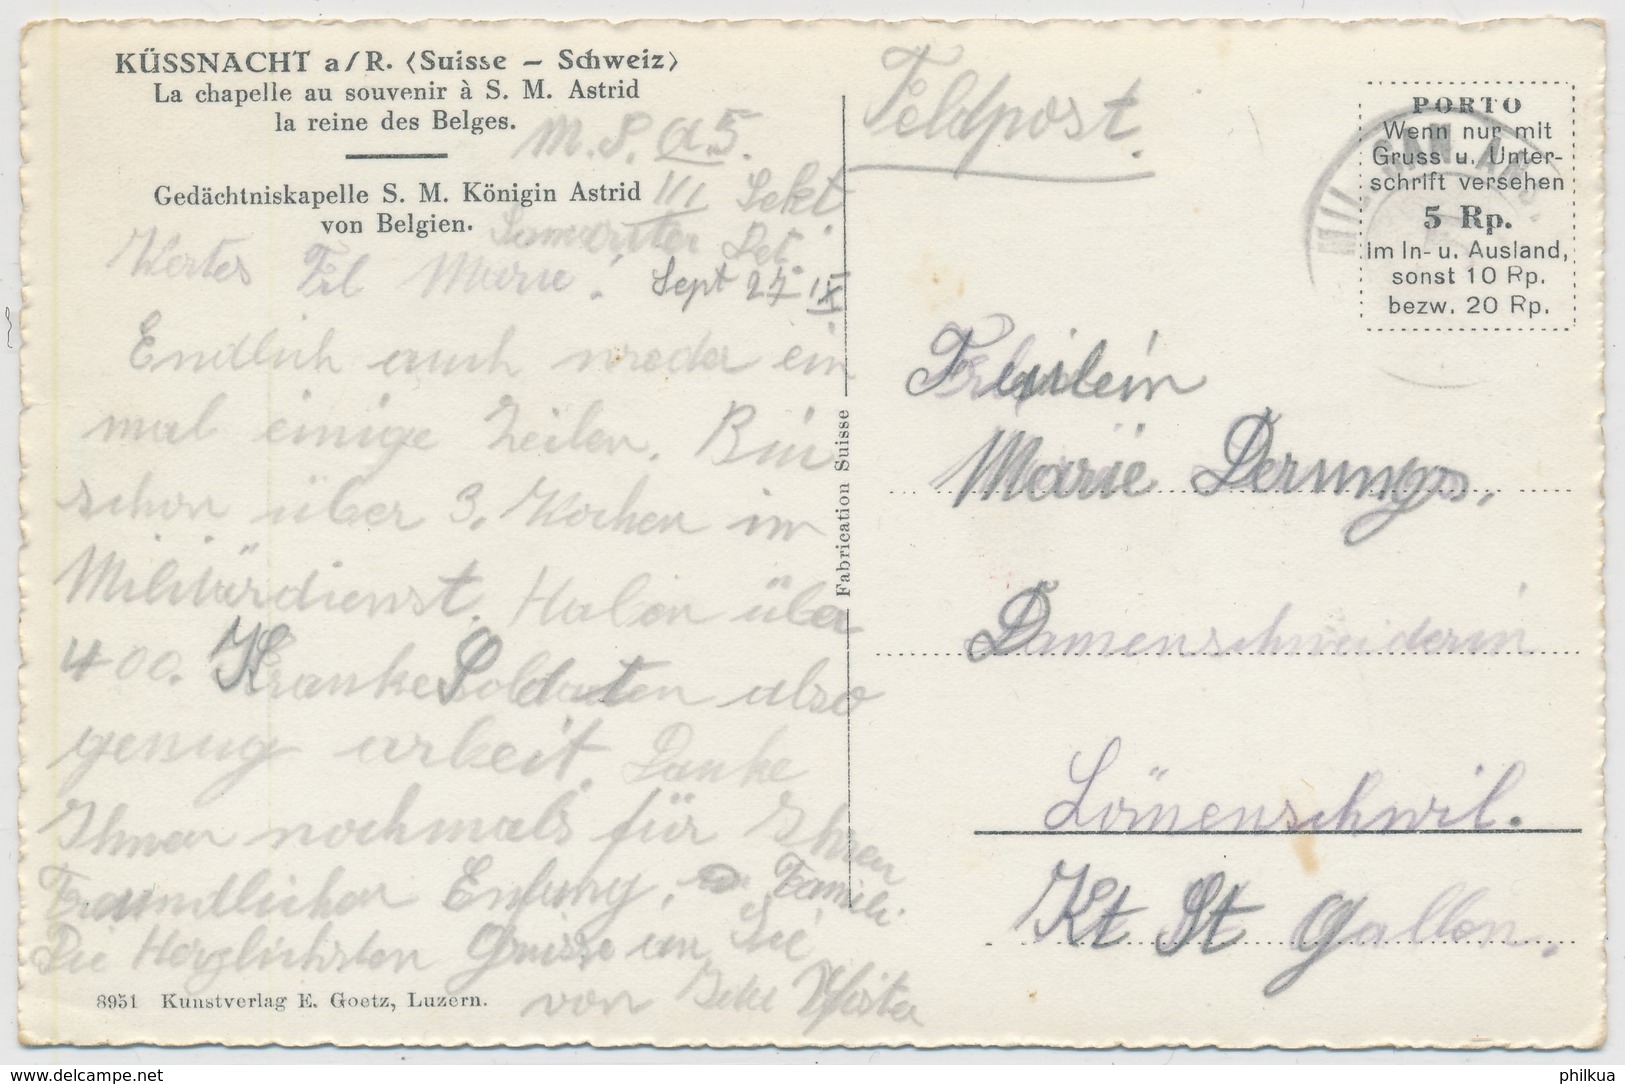 KÜSSNACHT a/R. (Suisse – Schweiz)
La chapelle au souvenir à S. M. Astrid
la reine des Belges.
Gedächtniskapelle S. M. Königin Astrid
von Belgien.
M.S.A.5.
III Sekt
Sept 27 IX
Wertes Frl Marie!
Endlich auch wieder ein
mal einige Zeilen. Bin
schon über 3. Wochen im
Militärdienst. Haben über
400. Kranke Soldaten also
genug arbeit. Danke
Ihnen nochmals für Ihren
Freundlichen Empfang. Famili.
Die Herzlichsten Grüsse an Sie
von
8951 Kunstverlag E. Goetz, Luzern.
Fabrication Suisse
Feldpost.
PORTO
Wenn nur mit
Gruss u. Unter-
schrift versehen
5 Rp.
im In- u. Ausland,
sonst 10 Rp.
bezw. 20 Rp.
MIL. SAN. ANS.
Fräulein
Marie Derungs,
Damenschneiderin
Lömenschwil.
Kt St Gallen.
delcampe.net
philkua